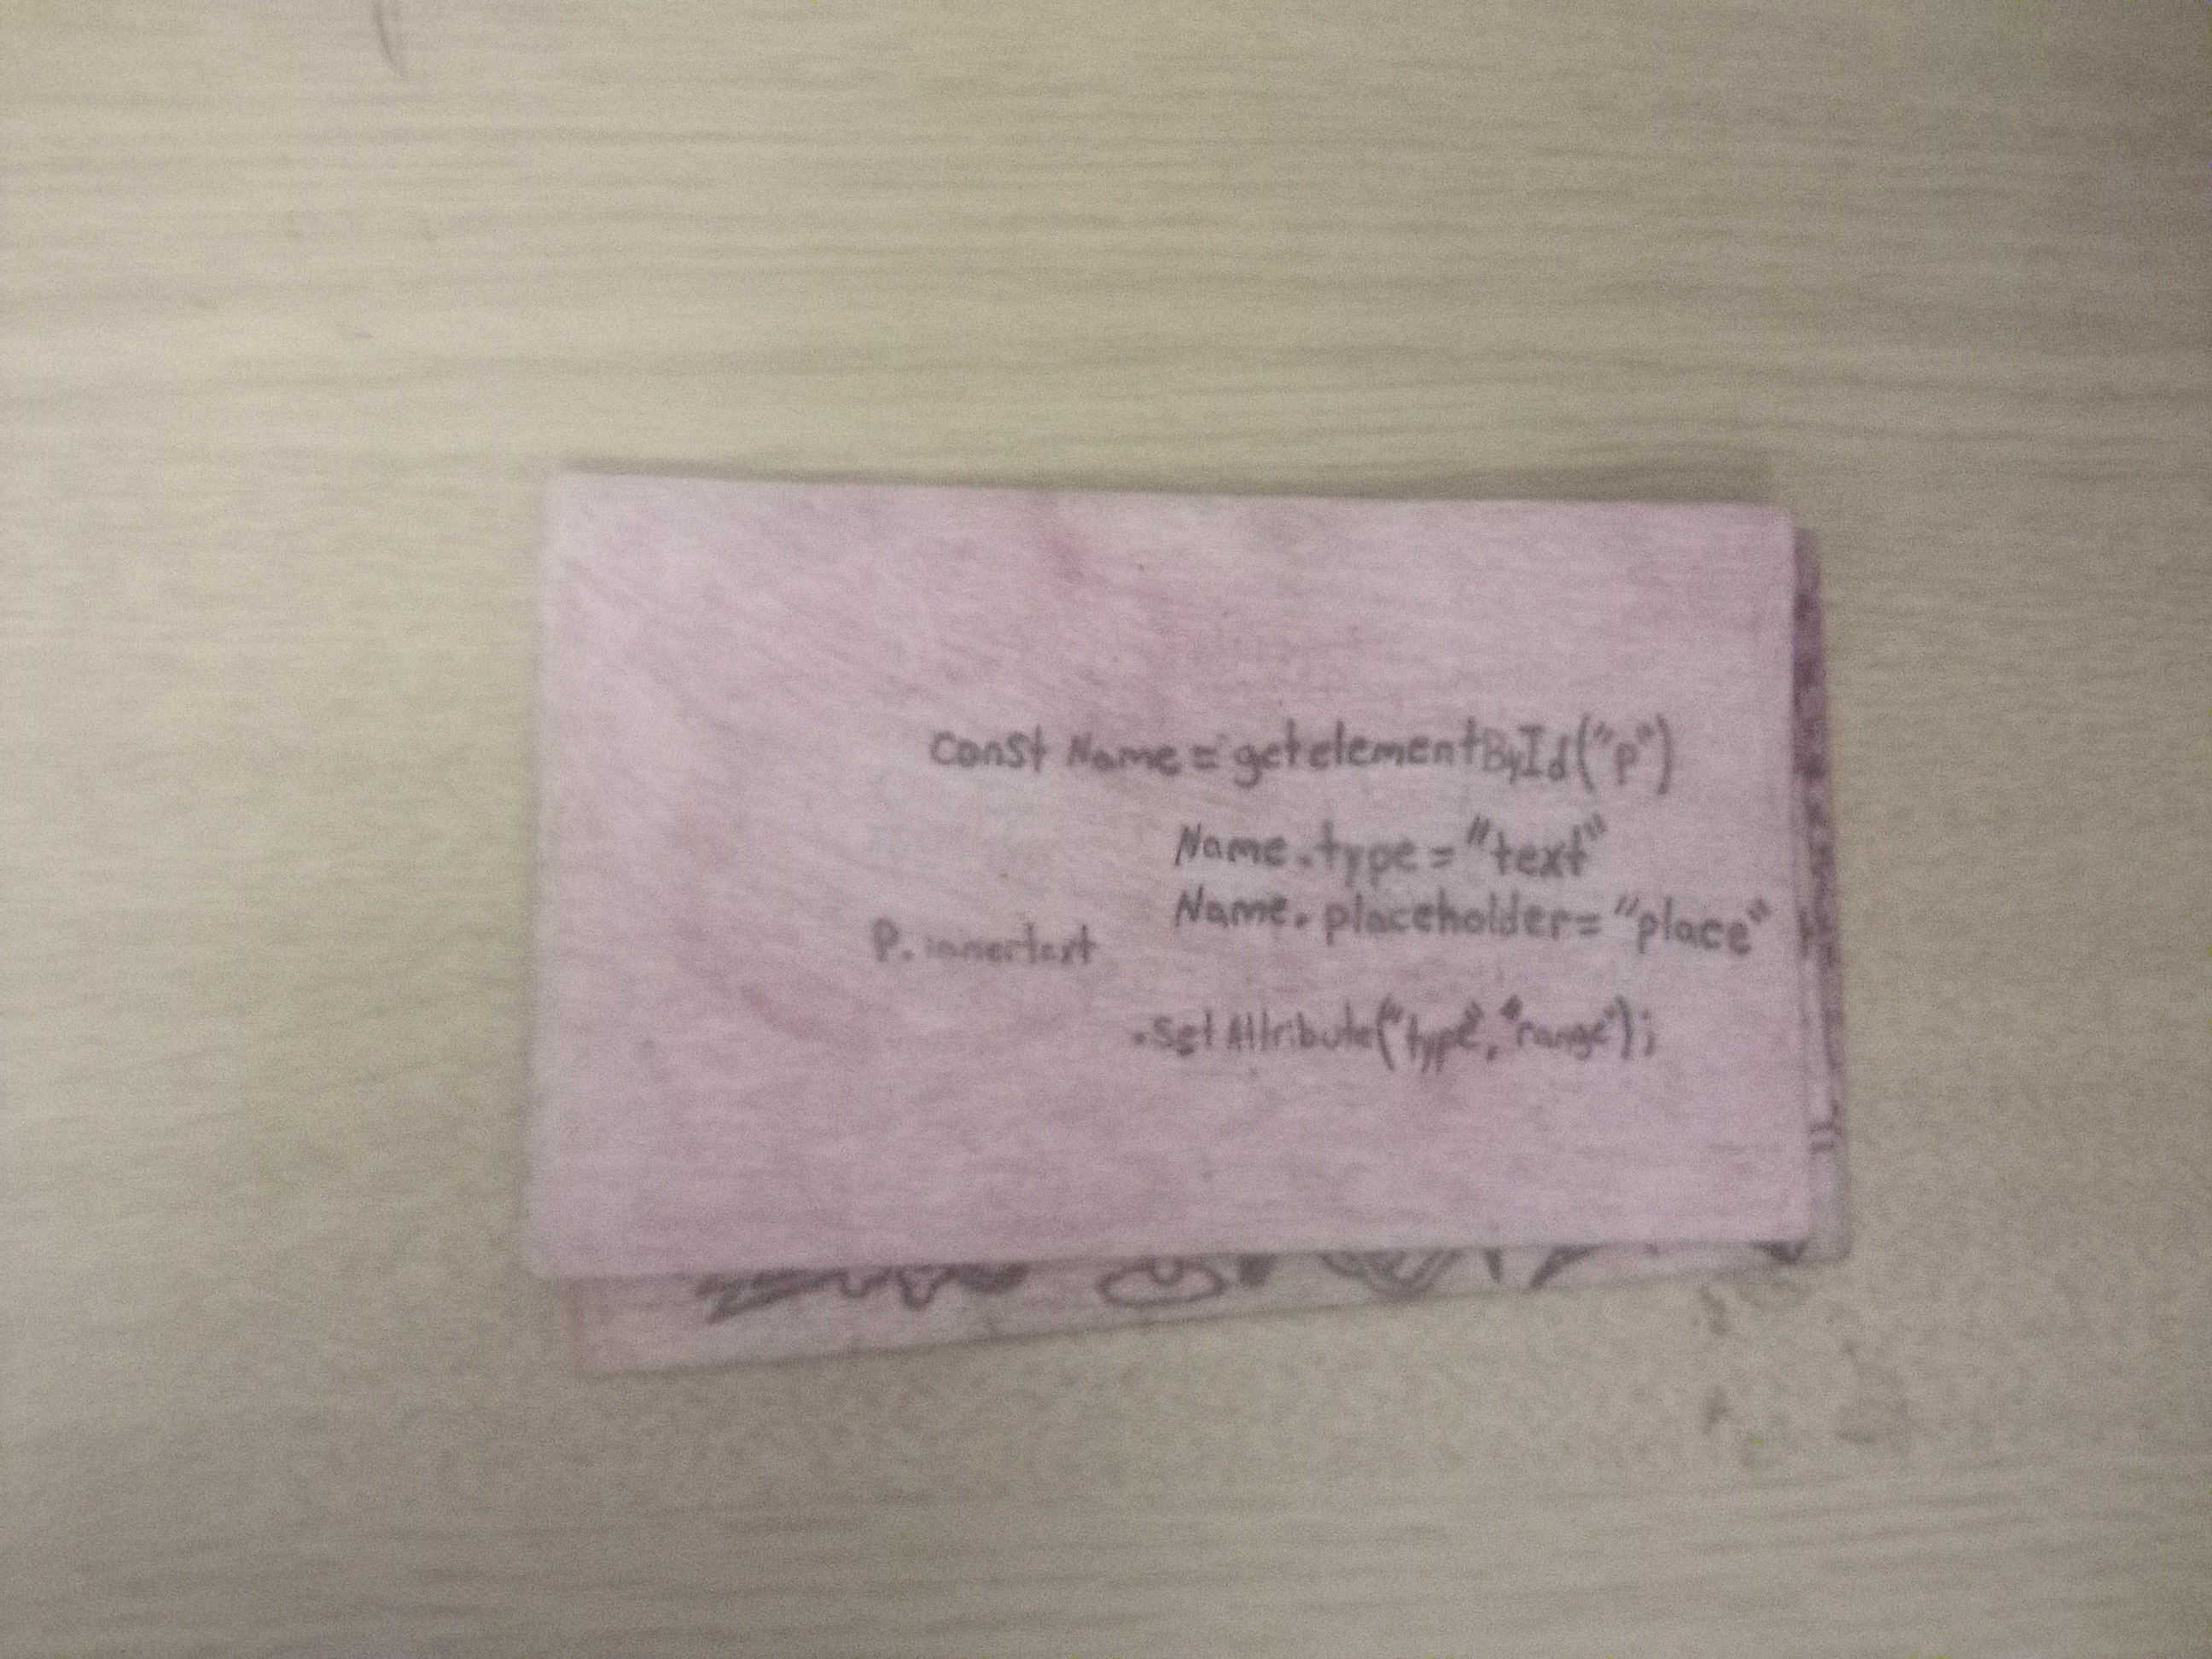 const Name = getelementById("p")
Name.type = "text"
Name.placeholder = "place"
P.innertext
.setAttribute("type", "range");